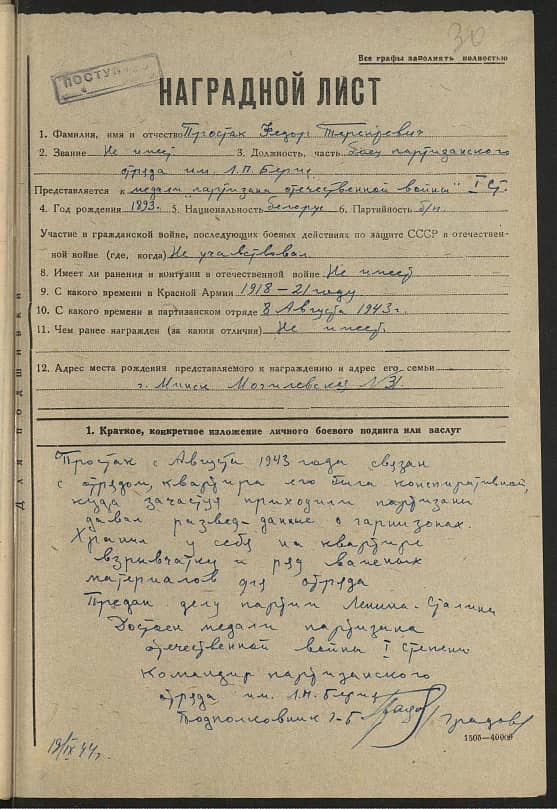 30
Все графы заполнять полностью
ПОСТУП
НАГРАДНОЙ ЛИСТ
1. Фамилия, имя и отчество Простак Федор Терентьевич
2. Звание Не имеет 3. Должность, часть боец партизанского
отряда им. Л.П. Берия
Представляется к медали "партизана отечественной войны" I ст.
4. Год рождения 1893г. 5. Национальность белорус 6. Партийность б/п.
Участие в гражданской войне, последующих боевых действиях по защите СССР и отечествен-
ной войне (где, когда) Не участвовал
8. Имеет ли ранения и контузии в отечественной войне Не имеет
9. С какого времени в Красной Армии 1918-21 году
10. С какого времени в партизанском отряде 8 Августа 1943 г.
11. Чем ранее награжден (за какия отличия) Не имеет.
12. Адрес места рождения представляемого к награждению и адрес его семьи
г. Минск Могилевская N 31
Для подшивки
1. Краткое, конкретное изложение личного боевого подвига или заслуг
Простак с Августа 1943 года связан
с отрядом, квартира его была конспиративной,
куда зачастую приходили партизаны
давал развед-данные о гарнизонах.
Хранил у себя на квартире
взрывчатку и ряд важных
материалов для отряда
Предан делу партии Ленина-Сталина
Достоен медали партизана
отечественной войны I степени
Командир партизанского
отряда им. Л.П. Берия
Подполковник Г-Б Градов
19/IX 44 г.
1505—40000